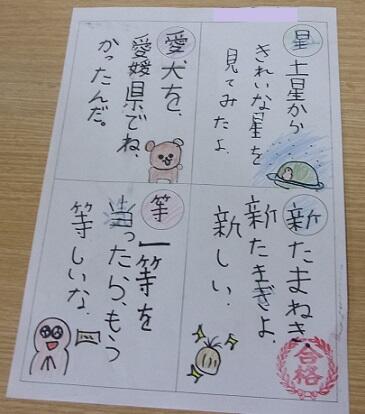 星 土星から
きれいな星を
見てみたよ。
愛犬を、
愛媛県でね、
かったんだ。
新たまねぎ
新たまぎよ
新しい。
等 一等を
当ったら、もう
等しいな。
合格